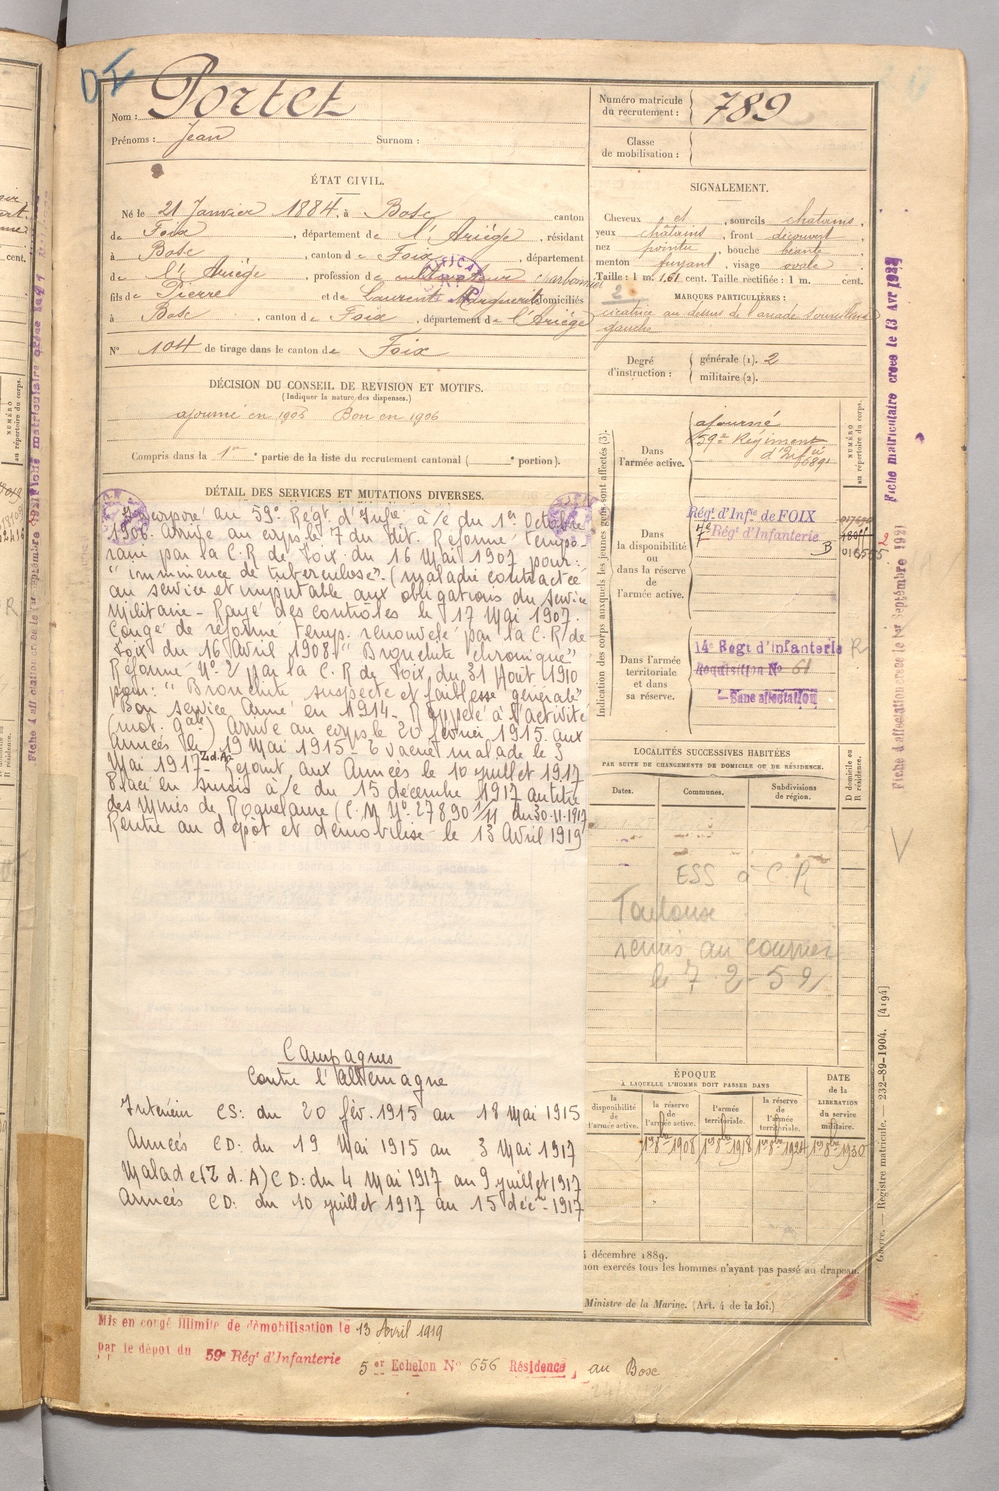 DI
Nom : Portet
Prénoms : Jean Surnom :
ÉTAT CIVIL.
Né le 21 Janvier 1884, à Bosc canton
de Foix, département de l'Ariège, résidant
à Bosc, canton de Foix, département
de l'Ariège, profession de cultivateur charbonnier
fils de Pierre et de Laurent Marguerite domiciliés
à Bosc, canton de Foix, département de l'Ariège
N° 104 de tirage dans le canton de Foix
DÉCISION DU CONSEIL DE REVISION ET MOTIFS.
(Indiquer la nature des dispenses.)
ajourné en 1905 Bon en 1906
Compris dans la 1re partie de la liste du recrutement cantonal ( e portion).
DÉTAIL DES SERVICES ET MUTATIONS DIVERSES.
Incorporé au 59e Régt d'Infie à/c du 1er Octobre
1906. Arrivé au corps le 7 du dit. Réformé tempo-
raire par la C.R de Foix du 16 Mai 1907 pour:
"imminence de tuberculose". (maladie contractée
au service et imputable aux obligations du service
Militaire - Rayé des contrôles le 17 Mai 1907.
Congé de réforme temp. renouvelé par la C.R de
Foix du 16 Avril 1908 "Bronchite chronique"
Réformé N° 2 par la C.R de Foix du 31 Août 1910
pour: "Bronchite suspecte et faiblesse générale"
Bon service Armé en 1914 - Rappelé à l'activité
(mob. gale) Arrivé au corps le 20 février 1915. aux
Armées le 19 Mai 1915 - Evacué malade le 3
Mai 1917 Z.d.A. Rejoint aux Armées le 10 juillet 1917
Placé en sursis à/c du 15 décembre 1917 au titre
des Mines de Roquelaure (C.M N° 27890 3/11 du 30-11-1917
Rentré au dépôt et démobilisé le 13 Avril 1919
Campagnes
Contre l'Allemagne
Intérieur CS: du 20 fév. 1915 au 18 Mai 1915
Armées CD: du 19 Mai 1915 au 3 Mai 1917
Malade (Z.d.A) CD: du 4 Mai 1917 au 9 juillet 1917
Armées CD: du 10 juillet 1917 au 15 déc. 1917
Numéro matricule du recrutement : 789
Classe de mobilisation :
SIGNALEMENT.
Cheveux et, sourcils chatains,
yeux châtains, front découvert,
nez pointu, bouche béante,
menton fuyant, visage ovale
Taille : 1 m. 61 cent. Taille rectifiée : 1 m. cent.
2
MARQUES PARTICULIÈRES :
cicatrice au dessus de l'arcade sourcilière
gauche
Degré d'instruction : générale (1). 2
militaire (2).
Indication des corps auxquels les jeunes gens sont affectés (3).
NUMÉRO au répertoire du corps.
Dans l'armée active.
ajourné
59e Régiment
d'Infie
Dans la disponibilité ou dans la réserve de l'armée active.
Régt d'Infie de FOIX
Régt d'Infanterie
B
Dans l'armée territoriale et dans sa réserve.
14e Régt d'Infanterie R
Réquisition N° 61
Sans affectation
LOCALITÉS SUCCESSIVES HABITÉES
PAR SUITE DE CHANGEMENTS DE DOMICILE OU DE RÉSIDENCE.
Dates. Communes. Subdivisions de région. D domicile ou R résidence.
ESS à C.R
Toulouse
remis au courrier
le 7-2-52
ÉPOQUE
À LAQUELLE L'HOMME DOIT PASSER DANS
la disponibilité de l'armée active. la réserve de l'armée active. l'armée territoriale. la réserve de l'armée territoriale.
DATE de la LIBÉRATION du service militaire.
1er 8bre 1908 1er 8bre 1918 1er 8bre 1924 1er 8bre 1930
décembre 1889.
non exercés tous les hommes n'ayant pas passé au drapeau.
Ministre de la Marine. (Art. 4 de la loi.)
Mis en congé illimité de démobilisation le 13 Avril 1919
par le dépôt du 59e Régt d'Infanterie
5 er Echelon N° 656 Résidence, au Bosc
Fiche matriculaire créée le 13 Avr
Fiche d'affectation créée le 1er Septembre 1921
Guerre. — Registre matricule. — 232-89-1904. [4194]